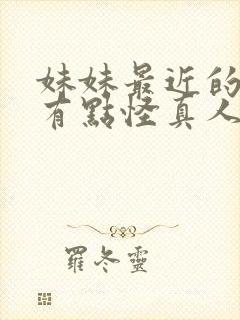 妹妹最近的
有點怪真人
羅冬靈